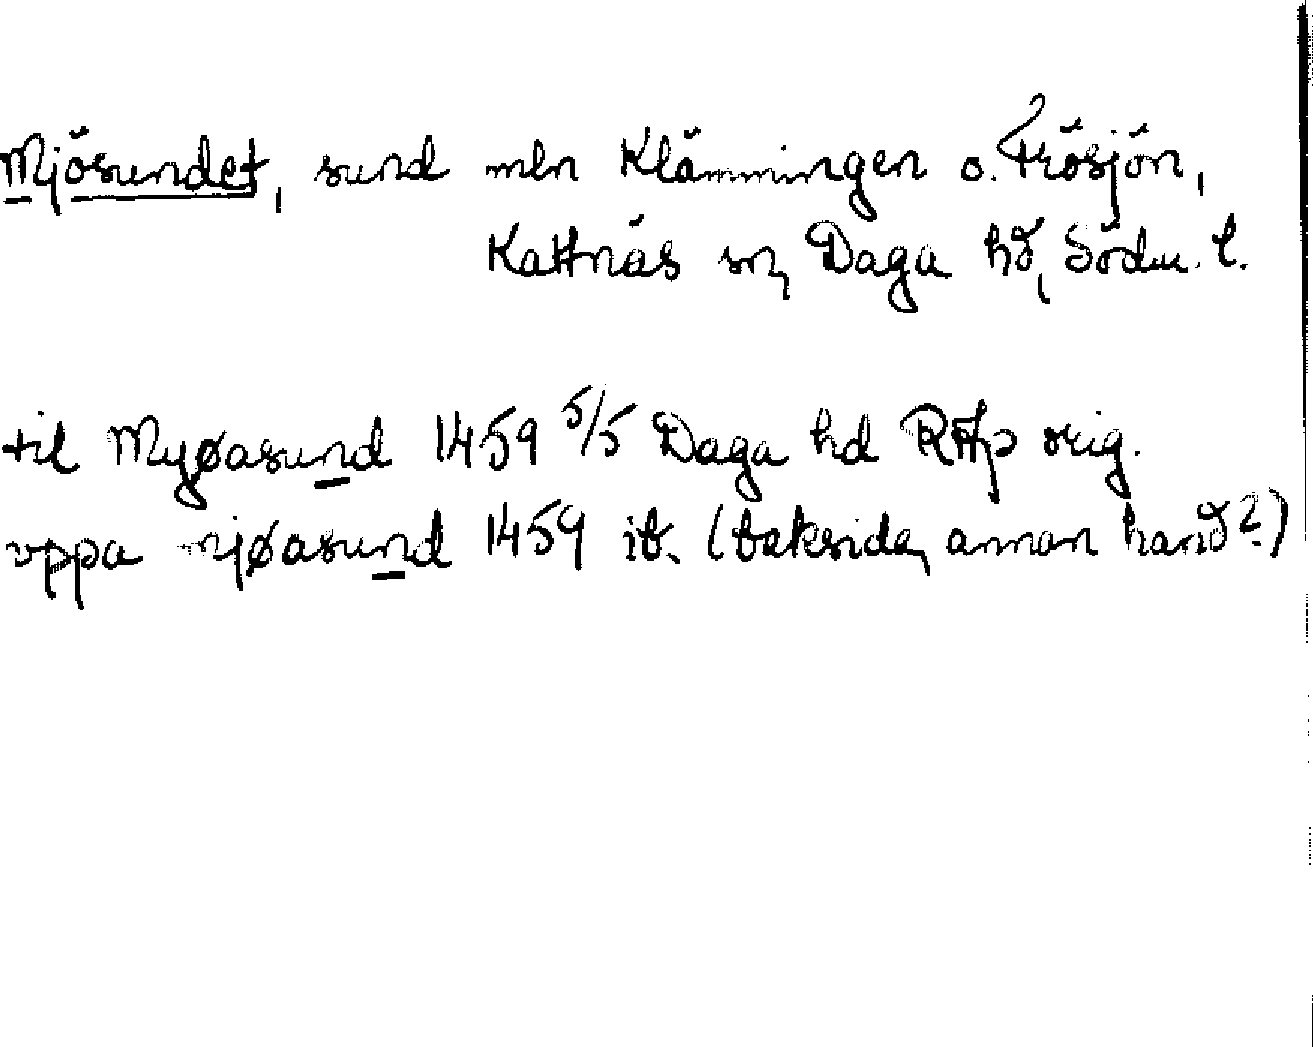 Mjösundet, sund mln Klämmingen o. Frösjön,
Kattnäs sn, Daga hd, Södm. l.
til Myøasund 1459 5/5 Daga hd RAp orig.
uppa mjøasund 1459 ib. (baksida, annan hand?)